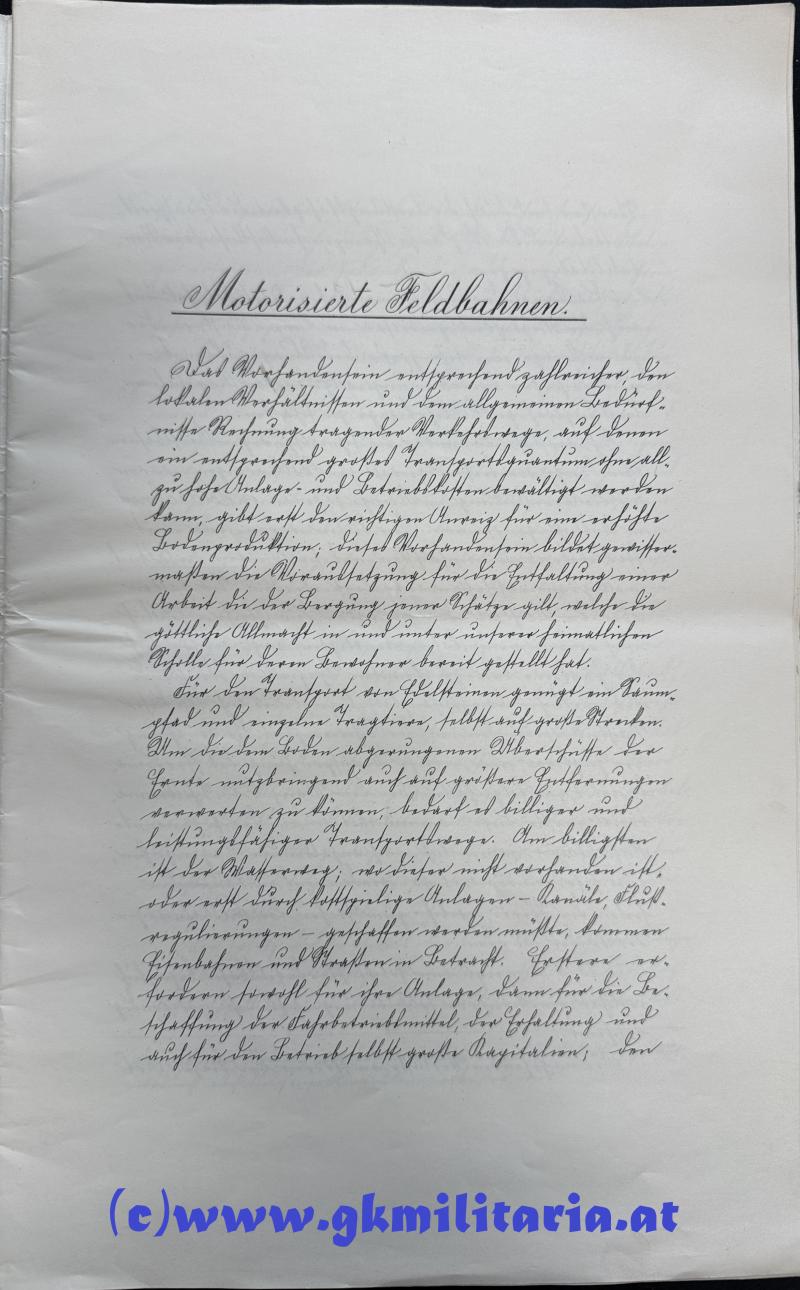 Motorisierte Feldbahnen.
Das Vorhandensein entsprechend zahlreicher, den
lokalen Verhältnissen und dem allgemeinen Bedürf-
nisse Rechnung tragender Verkehrswege, auf denen
ein entsprechend großes Transportsquantum ohne all-
zu hohe Anlage- und Betriebskosten bewältigt werden
kann, gibt erst den richtigen Anreiz für eine erhöhte
Bodenproduktion; dieses Vorhandensein bildet gewisser-
maßen die Voraussetzung für die Entfaltung einer
Arbeit die der Bergung jener Schätze gilt, welche die
göttliche Allmacht in und unter unserer heimatlichen
Scholle für deren Bewohner bereit gestellt hat.
Für den Transport von Edelsteinen genügt ein Saum-
pfad und einzelne Tragtiere, selbst auf große Strecken.
Um die dem Boden abgerungenen Überschüsse der
Ernte nutzbringend auch auf größere Entfernungen
verwerten zu können, bedarf es billiger und
leistungsfähiger Transportswege. Am billigsten
ist der Wasserweg; wo dieser nicht vorhanden ist,
oder erst durch kostspielige Anlagen – Kanäle, Fluß-
regulierungen – geschaffen werden müßte, kommen
Eisenbahnen und Straßen in Betracht. Erstere er-
fordern sowohl für ihre Anlage, dann für die Be-
schaffung der Fahrbetriebsmittel, der Erhaltung und
auch für den Betrieb selbst große Kapitalien; den
(c)www.gkmilitaria.at